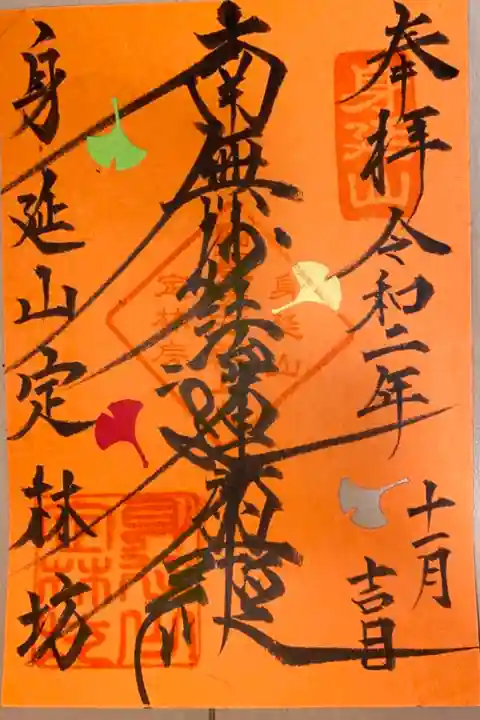 奉拝 令和二年
十一月
吉日
身延山
南無妙法蓮華経
身延山
定林坊
身延山定林坊